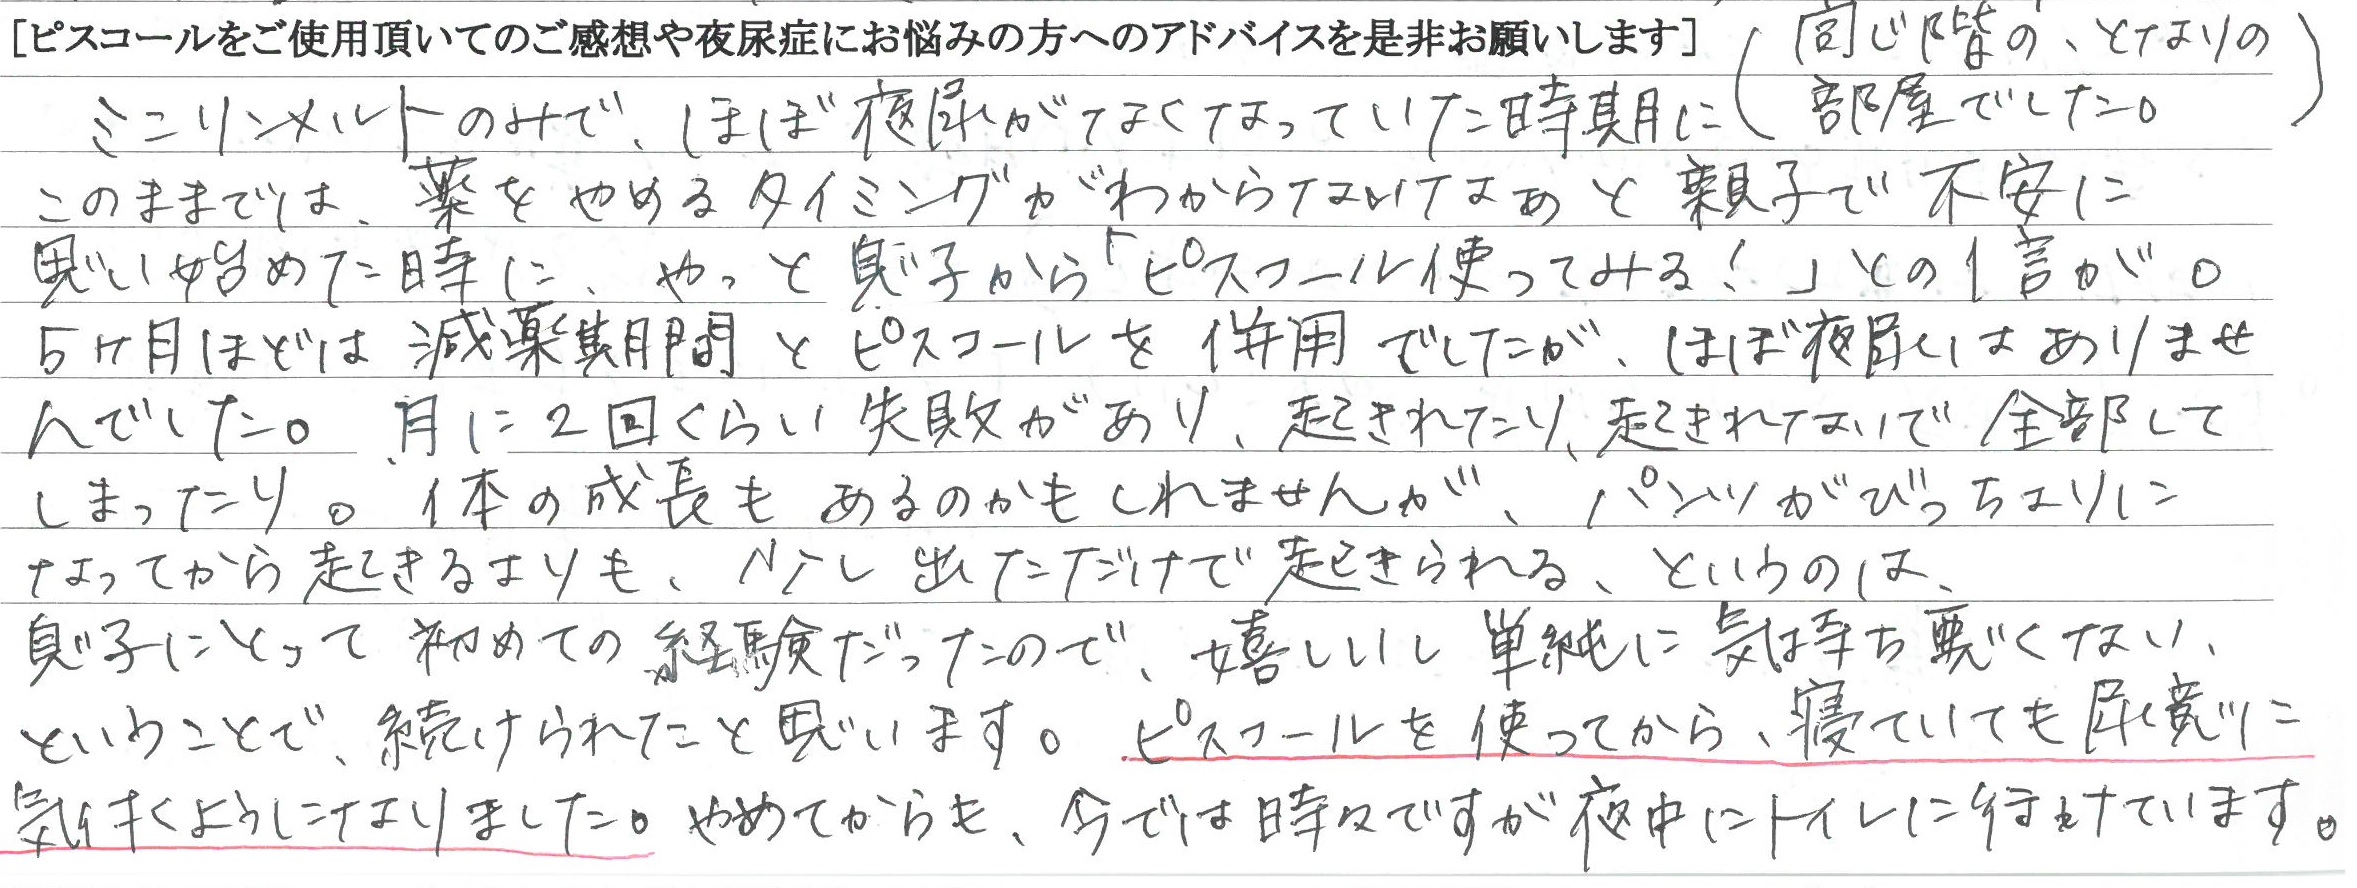 [ピスコールをご使用頂いてのご感想や夜尿症にお悩みの方へのアドバイスを是非お願いします]
(同じ階の、となりの
部屋でした。)
ミニリンメルトのみで、ほぼ夜尿がなくなっていた時期に
このままでは、薬をやめるタイミングがわからないなぁと親子で不安に
思い始めた時に、やっと息子から「ピスコール使ってみる!」との1言が。
5ヶ月ほどは減薬期間とピスコールを併用でしたが、ほぼ夜尿はありませ
んでした。月に2回くらい失敗があり、起きれたり、起きれないで全部して
しまったり。体の成長もあるのかもしれませんが、パンツがびっちょりに
なってから起きるよりも、少し出ただけで起きられる、というのは、
息子にとって初めての経験だったので、嬉しいし単純に気持ち悪くない、
ということで、続けられたと思います。ピスコールを使ってから、寝ていても尿意に
気付くようになりました。やめてからも、今では時々ですが夜中にトイレに行けています。